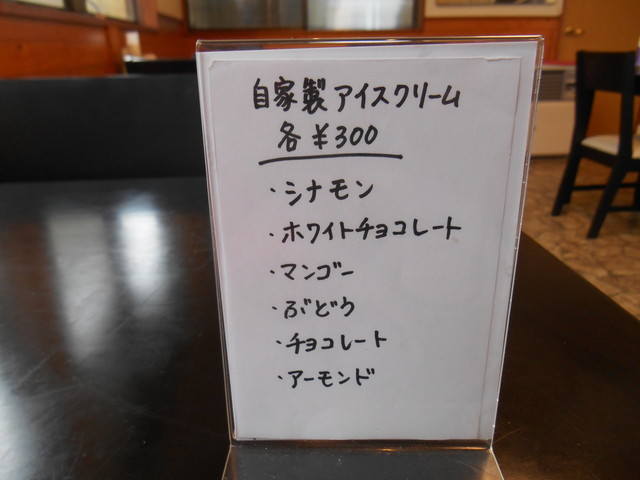 自家製アイスクリーム
各¥300
・シナモン
・ホワイトチョコレート
・マンゴー
・ぶどう
・チョコレート
・アーモンド